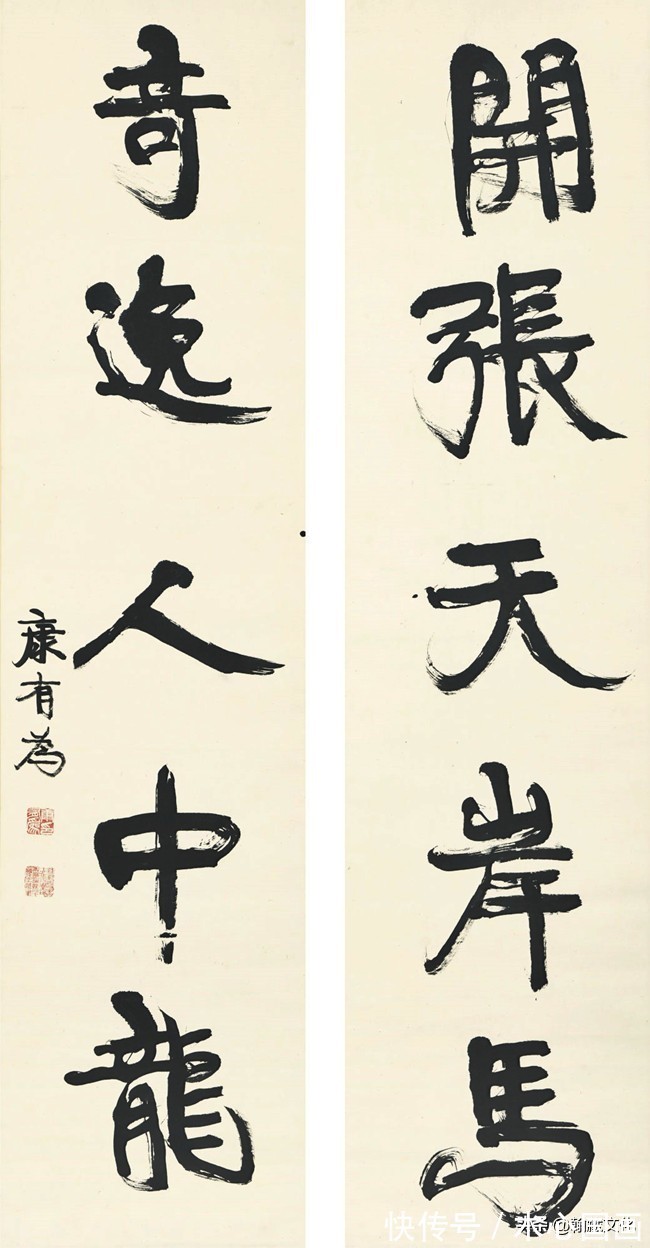 開張天岸馬
奇逸人中龍
康有為
快传号/水心国画